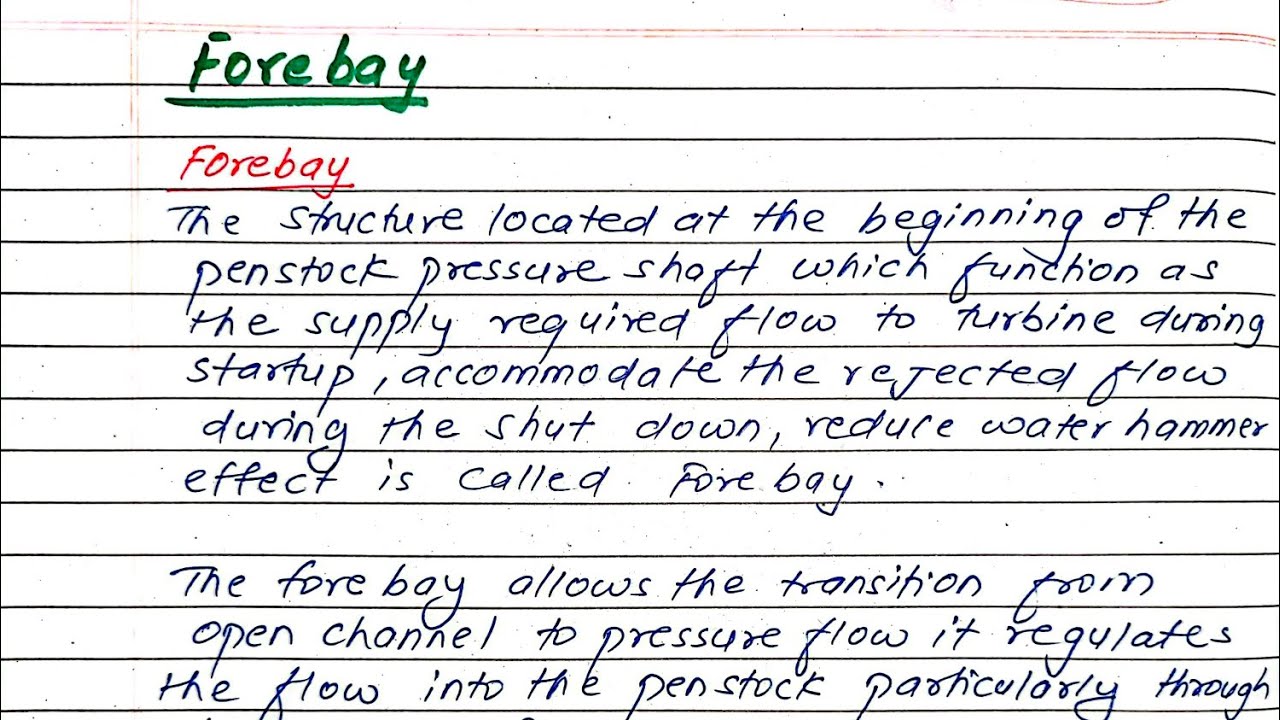 Forebay
Forebay
The structure located at the beginning of the
penstock pressure shaft which function as
the supply required flow to turbine during
startup, accommodate the rejected flow
during the shut down, reduce water hammer
effect is called Forebay.
The forebay allows the transition from
open channel to pressure flow it regulates
the flow into the penstock particularly through